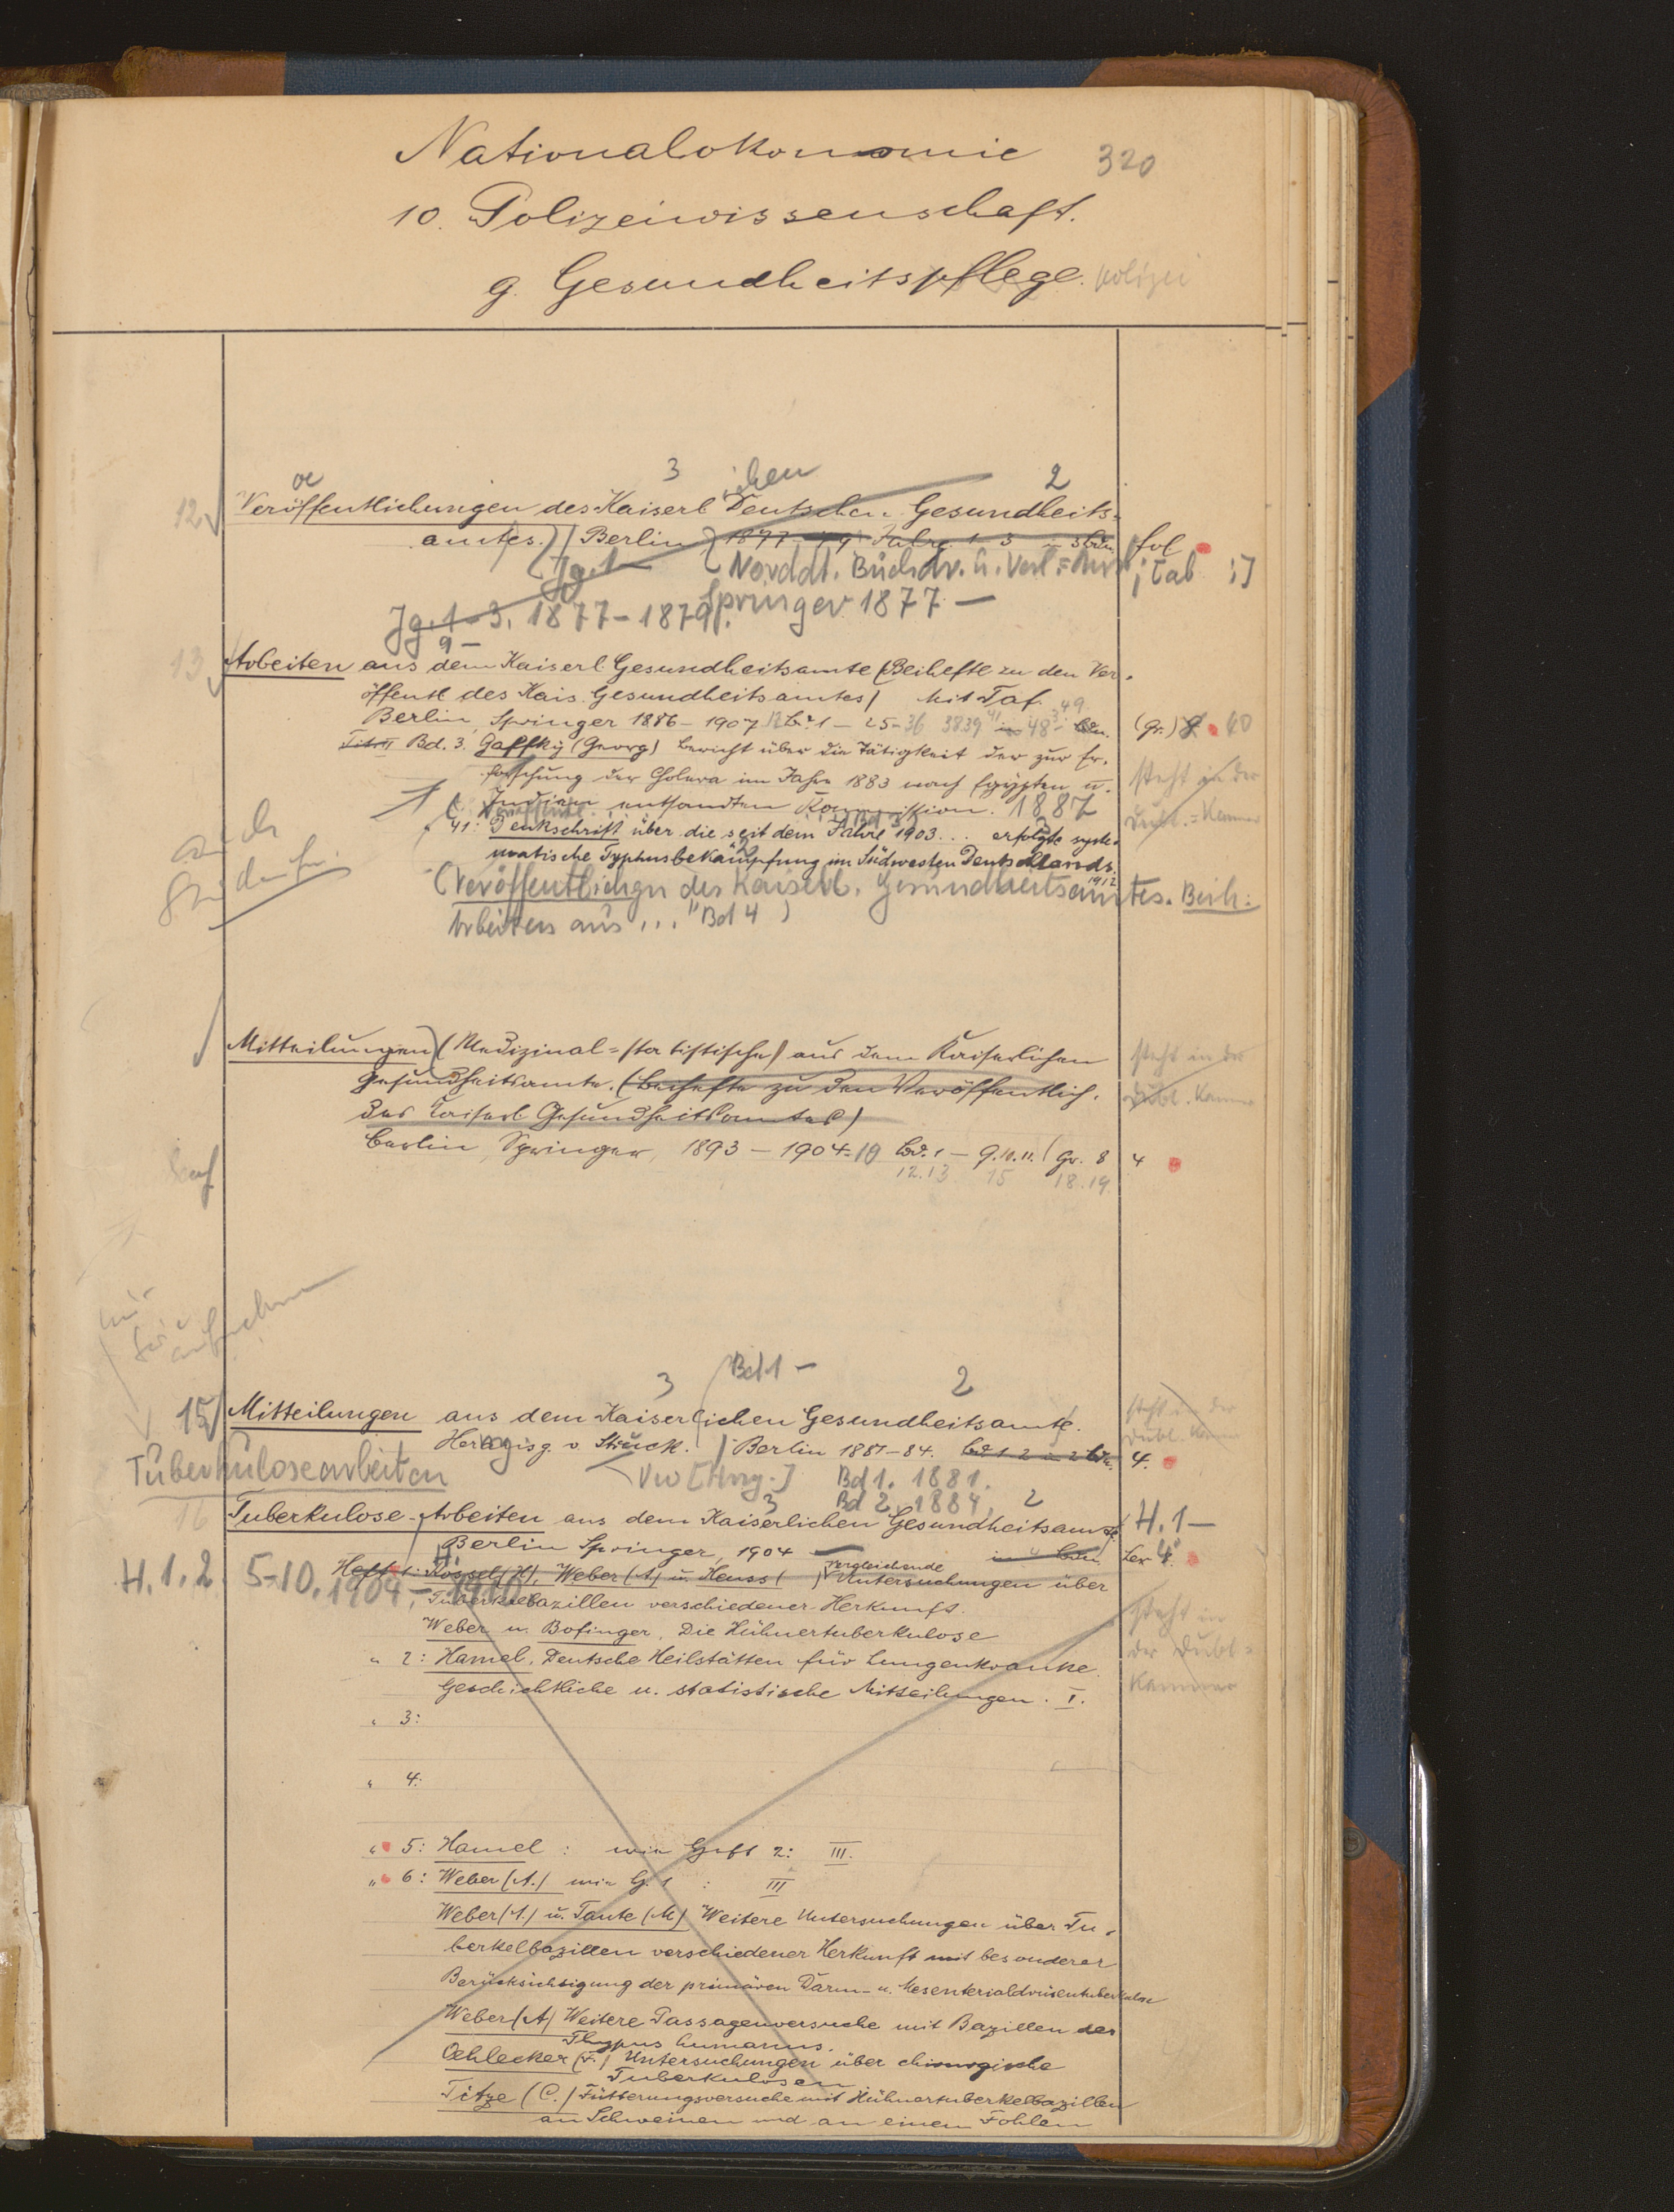 Nationalökonomie 320
10. Polizeiwissenschaft.
g. Gesundheitspflege. polizei
oe 3 ichen 2
12 Veröffentlichungen des Kaiserl Deutschen Gesundheits-
amtes.) (Berlin 1877-79 Jahrg. 1-3 in 3 Bdn. fol
Jg. 1— Norddt. Buchdr. u. Verl. ; Tab :]
Jg. 1-3. 1877-1879. Springer 1877 —
9 —
13 Arbeiten aus dem Kaiserl. Gesundheitsamte (Beihefte zu den Ver-
öffentl des Kais. Gesundheitsamtes) Mit Taf. 49.
Berlin, Springer 1886-1907 Bd. 1-25-36 38 39 41 in 48 Bdn. (Gr.) 8 40
Tit. II Bd. 3. Gaffky (Georg) Bericht über die Tätigkeit der zur Er-
forschung der Cholera im Jahre 1883 nach Egypten u. steht in der
Indien entsandten Kommission. 1887 Dubl.-Kammer
" 41: Denkschrift über die seit dem Jahre 1903 ... erfolgte syste-
matische Typhusbekämpfung im Südwesten Deutschlands.
1912
(Veröffentlichgn des Kaiserl. Gesundheitsamtes. Beih:
Arbeiten aus ..." Bd 4)
Mitteilungen (Medizinal-statistische) aus dem Kaiserlichen steht in der
Gesundheitsamte. (Beihefte zu den Veröffentlich. Dubl. Kammer
des Kaiserl. Gesundheitsamtes)
Berlin, Springer, 1893-1904-19 Bd. 1-9. 10. 11. Gr. 8 4
12. 13 15 18. 19.
aufnehmen
Bd 1 —
3 2
15 Mitteilungen aus dem Kaiserlichen Gesundheitsamte. steht in der
Herausg. v. Struck. Berlin 1881-84. Bd 1. 2 in 2 Bdn. 4.
Tuberkulosearbeiten [Hrsg.] Bd 1. 1881.
3 Bd 2. 1884. 2
16 Tuberkulose-Arbeiten aus dem Kaiserlichen Gesundheitsamte H. 1—
Berlin Springer, 1904 — in Bdn Lex 4°
H. 1. 2 5-10. 1904-1910 Heft 1: Kossel (H), Weber (A) u. Heuss ( ) Vergleichende Untersuchungen über
Tuberkelbazillen verschiedener Herkunft. steht in
Weber u. Bofinger, Die Hühnertuberkulose der Dubl-
" 2: Hamel, Deutsche Heilstätten für Lungenkranke. Kammer
Geschichtliche u. statistische Mitteilungen. I.
" 3:
" 4:
" 5: Hamel: wie Heft 2: III.
" 6: Weber (A.) wie H. 1 : III
Weber (A.) u. Taute (M) Weitere Untersuchungen über Tu-
berkelbazillen verschiedener Herkunft mit besonderer
Berücksichtigung der primären Darm- u. Mesenterialdrüsentuberkulose
Weber (A) Weitere Passagenversuche mit Bazillen des
Thypus humanus.
Oehlecker (F.) Untersuchungen über chirurgische
Tuberkulosen
Titze (C.) Fütterungsversuche mit Hühnertuberkelbazillen
an Schweinen und an einem Fohlen